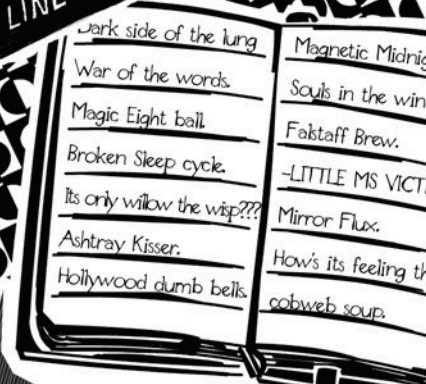 LINE
Dark side of the lung
War of the words.
Magic Eight ball.
Broken Sleep cycle.
Its only willow the wisp???
Ashtray Kisser.
Hollywood dumb bells.
Magnetic
Souls in the
Falstaff Brew.
-LITTLE MS
Mirror Flux.
How's its feeling
cobweb soup.